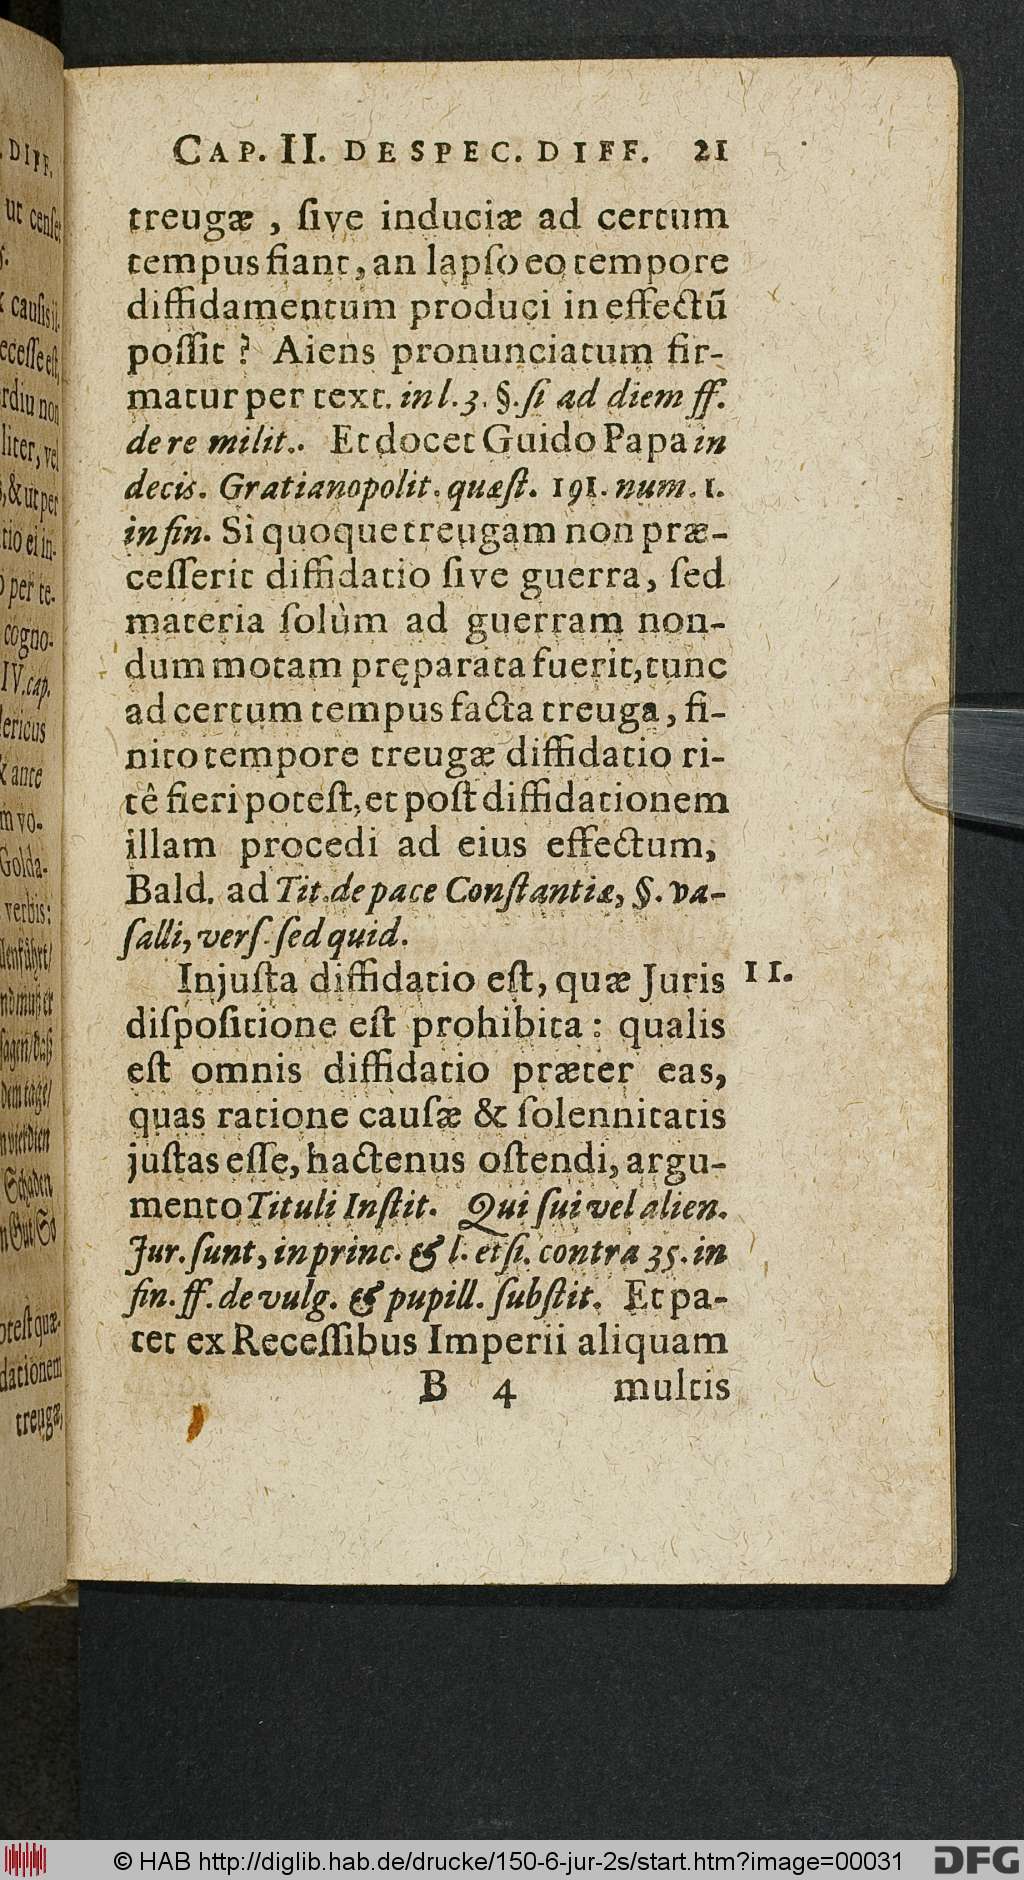 CAP. II. DE SPEC. DIFF. 21
treugæ, ſive induciæ ad certum
tempus fiant, an lapſo eo tempore
diffidamentum produci in effectũ
poſſit? Aiens pronunciatum fir-
matur per text. in l. 3. §. ſi ad diem ff.
de re milit.. Et docet Guido Papa in
decis. Gratianopolit. quæſt. 191. num. 1.
in fin. Si quoque treugam non præ-
ceſſerit diffidatio ſive guerra, ſed
materia ſolùm ad guerram non-
dum motam pręparata fuerit, tunc
ad certum tempus facta treuga, fi-
nito tempore treugæ diffidatio ri-
tê fieri poteſt, et poſt diffidationem
illam procedi ad eius effectum,
Bald. ad Tit. de pace Conſtantiæ, §. va-
ſalli, verſ. ſed quid.
Injuſta diffidatio eſt, quæ Juris 11.
diſpoſitione eſt prohibita: qualis
eſt omnis diffidatio præter eas,
quas ratione cauſæ & ſolennitatis
juſtas eſſe, hactenus oſtendi, argu-
mento Tituli Inſtit. Qui ſui vel alien.
Jur. ſunt, in princ. & l. etſi. contra 35. in
fin. ff. de vulg. & pupill. ſubſtit. Et pa-
tet ex Receſſibus Imperii aliquam
B 4 multis
DIFF.
ut cenſet
cauſis
non
liter, vel
& ut per
tio ei in-
per te-
cogno-
IV. cap.
& ante
m vo-
Golda-
verbis:
Schaden
oteſt quæ-
dationem
treugæ,
© HAB http://diglib.hab.de/drucke/150-6-jur-2s/start.htm?image=00031
DFG